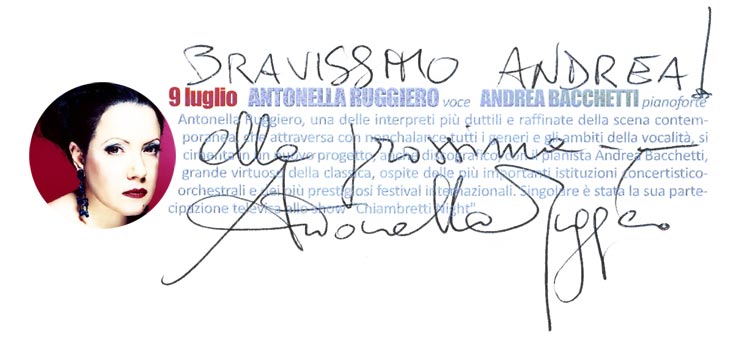 BRAVISSIMO ANDREA!
9 luglio ANTONELLA RUGGIERO voce ANDREA BACCHETTI pianoforte
Antonella Ruggiero, una delle interpreti più duttili e raffinate della scena contem-
poranea, che attraversa con nonchalance tutti i generi e gli ambiti della vocalità, si
cimenta in un nuovo progetto, anche discografico, con il pianista Andrea Bacchetti,
alla prossima -
grande virtuoso della classica, ospite delle più importanti istituzioni concertistico-
orchestrali e dei più prestigiosi festival internazionali. Singolare è stata la sua parte-
cipazione televisa allo show "Chiambretti Night"
Antonella Ruggiero